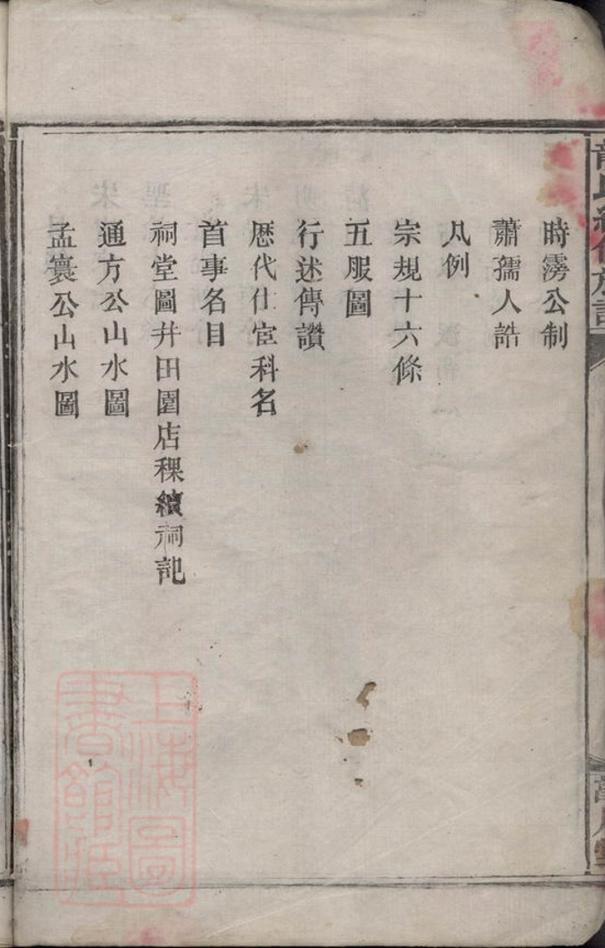 時雱公制
蕭孺人誥
凡例
宗規十六條
五服圖
行述傳讚
歷代仕宦科名
首事名目
祠堂圖并田園店稞續祠記
通方公山水圖
孟寰公山水圖
上海圖書館藏